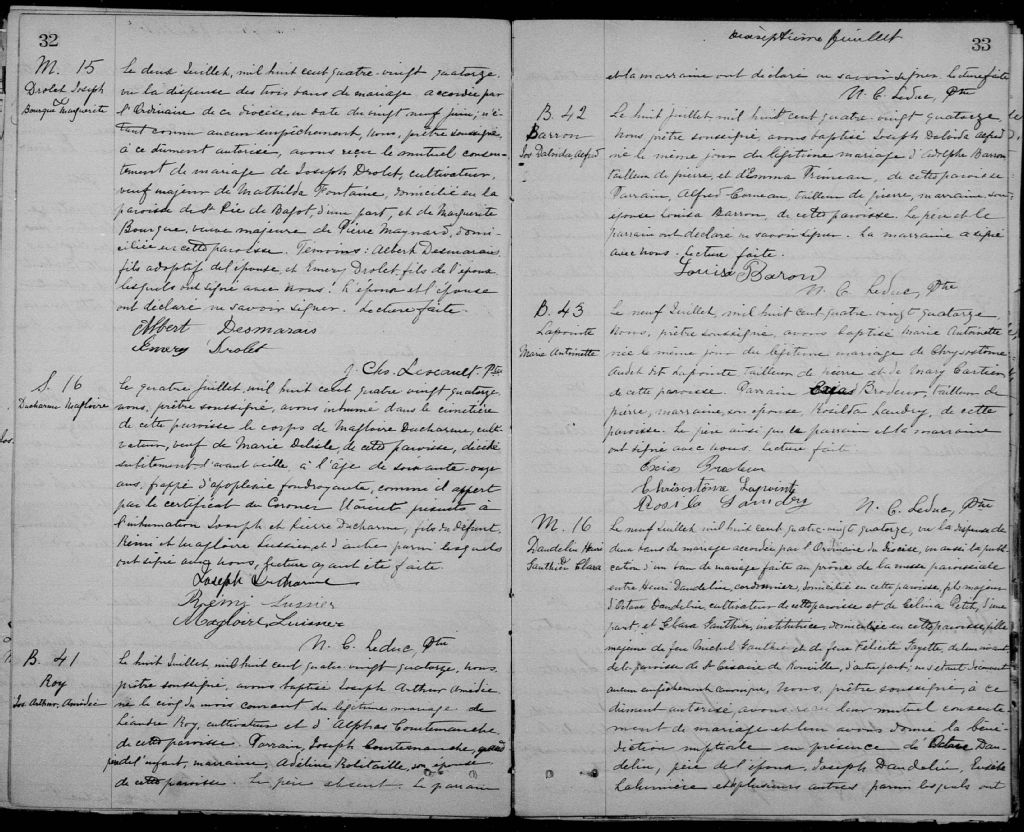 32
M. 15
Drolet Joseph
Bourque Marguerite
Le deux Juillet, mil huit cent quatre-vingt quatorze
vu la dispense des trois bans de mariage accordée par
l'Ordinaire de ce diocèse, en date du vingt neuf juin, n'é-
tant connu aucun empêchement, Nous, prêtre soussigné,
à ce dûment autorisé, avons reçu le mutuel consen-
tement de mariage de Joseph Drolet, cultivateur,
veuf majeur de Mathilda Fontaine, domicilié en la
paroisse de St Pie de Bagot, d'une part, et de Marguerite
Bourque, veuve majeure de Pierre Maynard, domi-
ciliée en cette paroisse. Témoins: Albert Desmarais
fils adoptif de l'épouse, et Emery Drolet, fils de l'époux
lesquels ont signé avec nous. L'époux et l'épouse
ont déclaré ne savoir signer. Lecture faite.
Albert Desmarais
Emery Drolet
J. Chs. Ptre
S. 16
Ducharme Magloire
Le quatre juillet mil huit cent quatre vingt quatorze,
nous, prêtre soussigné, avons inhumé dans le cimetière
de cette paroisse le corps de Magloire Ducharme, culti-
vateur, veuf de Marie Delisle, de cette paroisse, décédé
subitement d'avant veille, à l'âge de soixante-onze
ans, frappé d'apoplexie foudroyante, comme il appert
par le certificat du Coroner. Etaient présents à
l'inhumation Joseph et Pierre Ducharme, fils du défunt,
Rémi et Magloire Lussier, et d'autres parmi lesquels
ont signé avec nous, lecture ayant été faite.
Joseph Ducharme
Rémi Lussier
Magloire Lussier
N. C. Leduc, Ptre
B. 41
Roy
Jos Arthur, Amédée
Le huit Juillet, mil huit cent quatre vingt quatorze, nous,
prêtre soussigné, avons baptisé Joseph Arthur Amédée
né le cinq du mois courant du légitime mariage de
Léandre Roy, cultivateur et d'Alphas Courtemanche
de cette paroisse. Parrain, Joseph Courtemanche, grand
père de l'enfant, marraine, Adéline Robitaille, son épouse
de cette paroisse. Le père absent. Le parrain
dixseptième feuillet
33
et la marraine ont déclaré ne savoir signer. Lecture faite
N. C. Leduc, Ptre
B. 42
Barron
Jos Dalvida, Alfred
Le huit Juillet mil huit cent quatre-vingt quatorze
Nous prêtre soussigné, avons baptisé Joseph Dalvida Alfred
né le même jour du légitime mariage d'Adolphe Barron
tailleur de pierre, et d'Emma Primeau, de cette paroisse
Parrain, Alfred Comeau tailleur de pierre, marraine son
épouse Louisa Barron, de cette paroisse. Le père et le
parrain ont déclaré ne savoir signer. La marraine a signé
avec nous. Lecture faite.
Louisa Baron
N. C. Leduc, Ptre
B. 43
Lapointe
Marie Antoinette
Le neuf Juillet, mil huit cent quatre vingt quatorze
Nous, prêtre soussigné, avons baptisé Marie Antoinette
née le même jour du légitime mariage de Chrysostôme
Audet dit Lapointe tailleur de pierre et de Mary Cartier
de cette paroisse. Parrain Brodeur, tailleur de
pierre, marraine, son épouse, Rosilda Landry, de cette
paroisse. Le père ainsi que le parrain et la marraine
ont signé avec nous. Lecture faite
Brodeur
Chrisistôme Lapointe
Rosila Landry
N. C. Leduc, Ptre
M. 16
Daudelin Henri
Gauthier Clara
Le neuf juillet, mil huit cent quatre-vingt quatorze, vu la dispense de
deux bans de mariage accordée par l'Ordinaire du diocèse, vu aussi la publi-
cation d'un ban de mariage faite au prône de la messe paroissiale
entre Henri Daudelin, cordonnier, domicilié en cette paroisse, fils majeur
d'Octave Daudelin cultivateur de cette paroisse et de Célina Petit, d'une
part, et Clara Gauthier, institutrice, domiciliée en cette paroisse, fille
majeure de feu Michel Gauthier et de feue Félicité Gazette, de leur vivant
de la paroisse de St Césaire de Rouville, d'autre part; ne s'étant découvert
aucun empêchement canonique, Nous, prêtre soussigné, à ce
dûment autorisé avons reçu leur mutuel consente
ment de mariage et leur avons donné la béné-
diction nuptiale en présence d'Octave Dau-
delin, père de l'époux, Joseph Daudelin, Eusèbe
Lalumière et plusieurs autres parmi lesquels ont